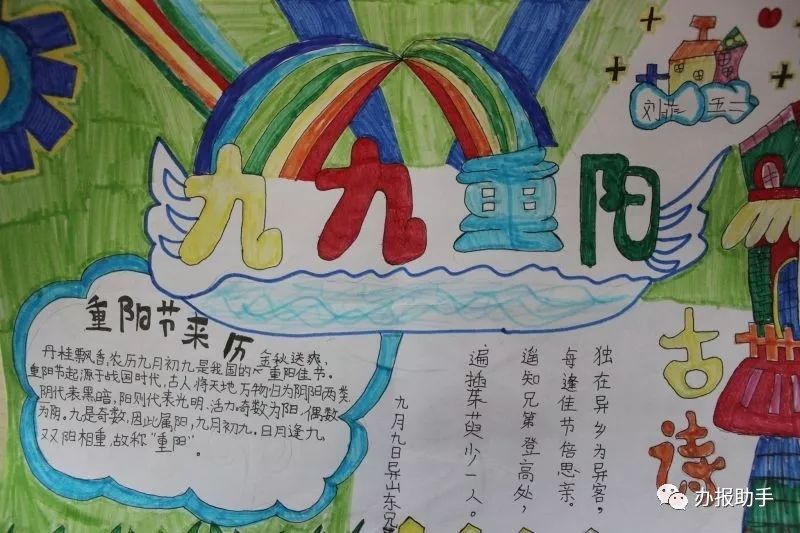 九九重阳
刘菲 五二
重阳节来历
金秋送爽、
丹桂飘香,农历九月初九是我国的重阳佳节。
重阳节起源于战国时代,古人将天地万物归为阴阳两类
阴代表黑暗,阳则代表光明、活力。奇数为阳,偶数
为阴。九是奇数,因此属阳,九月初九,日月逢九,
双阳相重,故称“重阳”。
古诗
独在异乡为异客,
每逢佳节倍思亲。
遥知兄第登高处,
遍插茱萸少一人。
九月九日异山东兄
办报助手